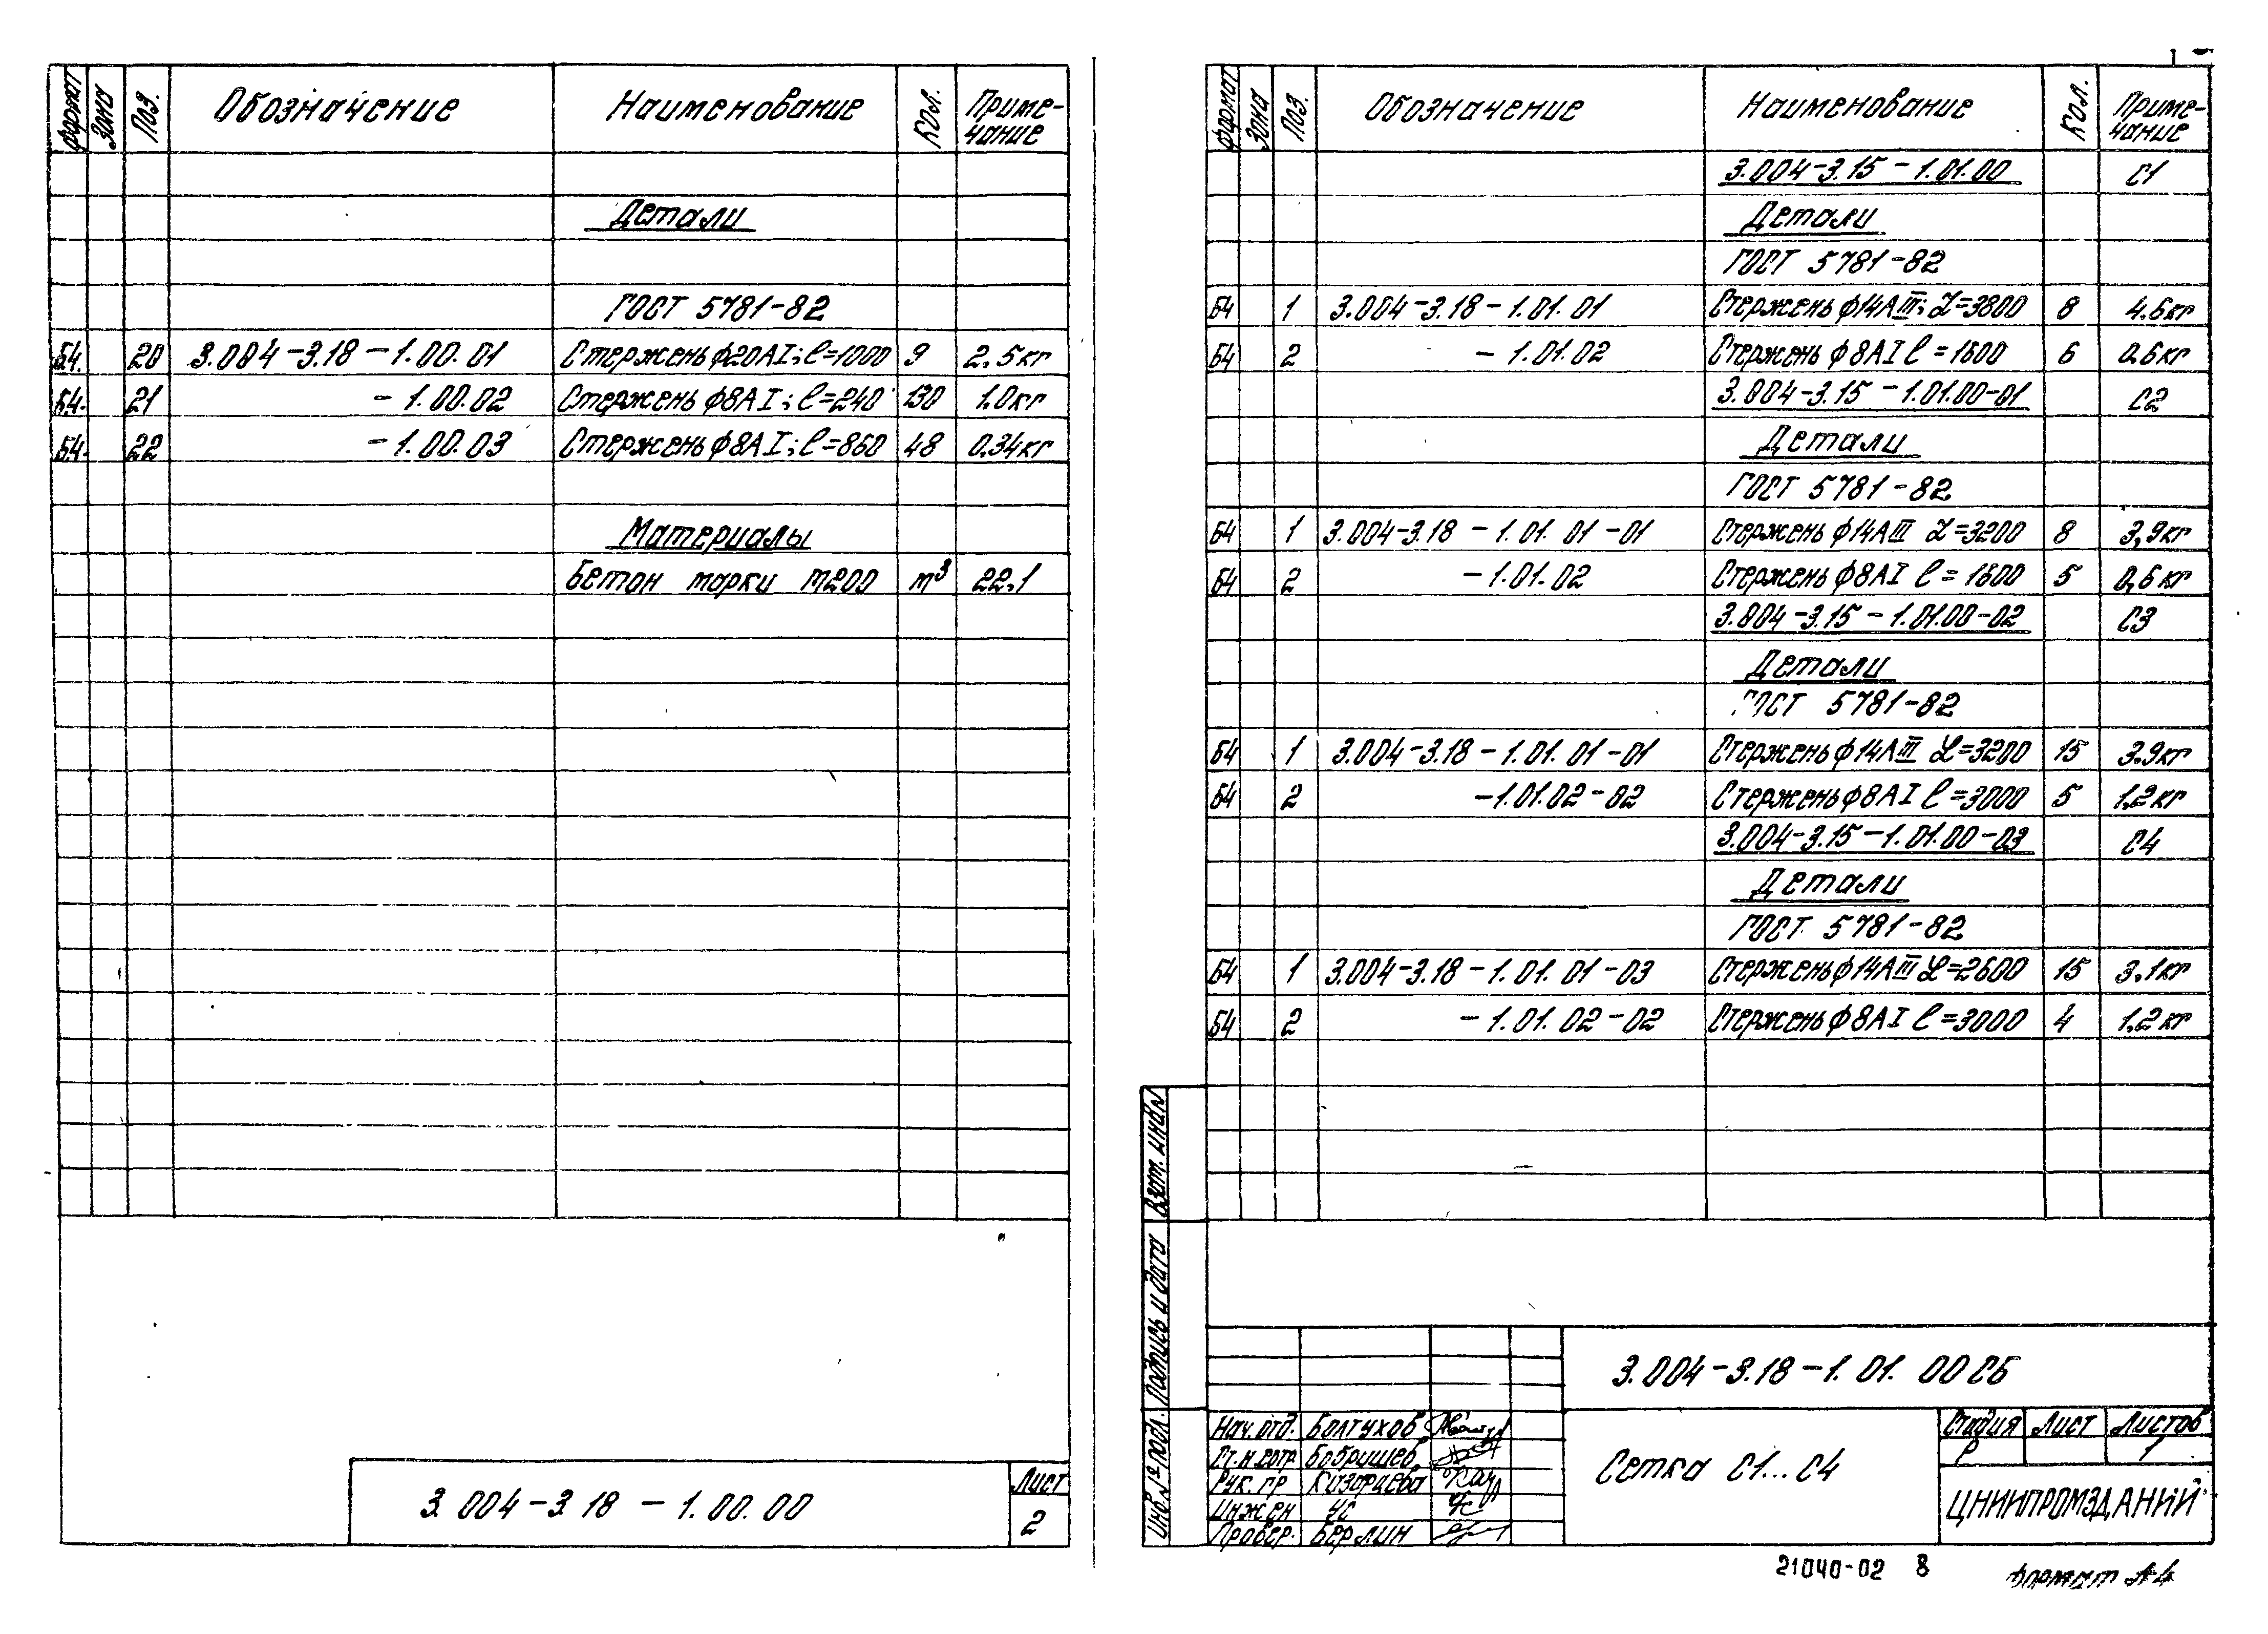 формат Зона Поз. Обозначение Наименование Кол. Приме-
чание
Детали
ГОСТ 5781-82
Б4. 20 3.004-3.18-1.00.01 Стержень ф20АI; ℓ=1000 9 2,5кг
Б4. 21 -1.00.02 Стержень ф8АI; ℓ=240 130 1.0кг
Б4. 22 -1.00.03 Стержень ф8АI; ℓ=860 48 0.34кг
Материалы
Бетон марки М200 м³ 22.1
3.004-3.18-1.00.00
Лист
2
формат Зона Поз. Обозначение Наименование Кол. Приме-
чание
3.004-3.15-1.01.00 С1
Детали
ГОСТ 5781-82
Б4 1 3.004-3.18-1.01.01 Стержень ф14АIII; L=3800 8 4.6кг
Б4 2 -1.01.02 Стержень ф8АI ℓ=1600 6 0.6кг
3.004-3.15-1.01.00-01 С2
Детали
ГОСТ 5781-82
Б4 1 3.004-3.18-1.01.01-01 Стержень ф14АIII L=3200 8 3,9кг
Б4 2 -1.01.02 Стержень ф8АI ℓ=1600 5 0,6кг
3.004-3.15-1.01.00-02 С3
Детали
ГОСТ 5781-82
Б4 1 3.004-3.18-1.01.01-01 Стержень ф14АIII L=3200 15 3.9кг
Б4 2 -1.01.02-02 Стержень ф8АI ℓ=3000 5 1,2кг
3.004-3.15-1.01.00-03 С4
Детали
ГОСТ 5781-82
Б4 1 3.004-3.18-1.01.01-03 Стержень ф14АIII L=2600 15 3,1кг
Б4 2 -1.01.02-02 Стержень ф8АI ℓ=3000 4 1,2кг
Взам. инв№
Подпись и дата
Инв.№ подл.
3.004-3.18-1.01.00СБ
Нач. отд. Болтухов
Ст.н.сотр Бобрышев
Рук. гр
Инжен Ус
Провер. Берлин
Сетка С1...С4
Стадия Лист Листов
Р 1
ЦНИИПРОМЗДАНИЙ
21040-02 8
формат А4